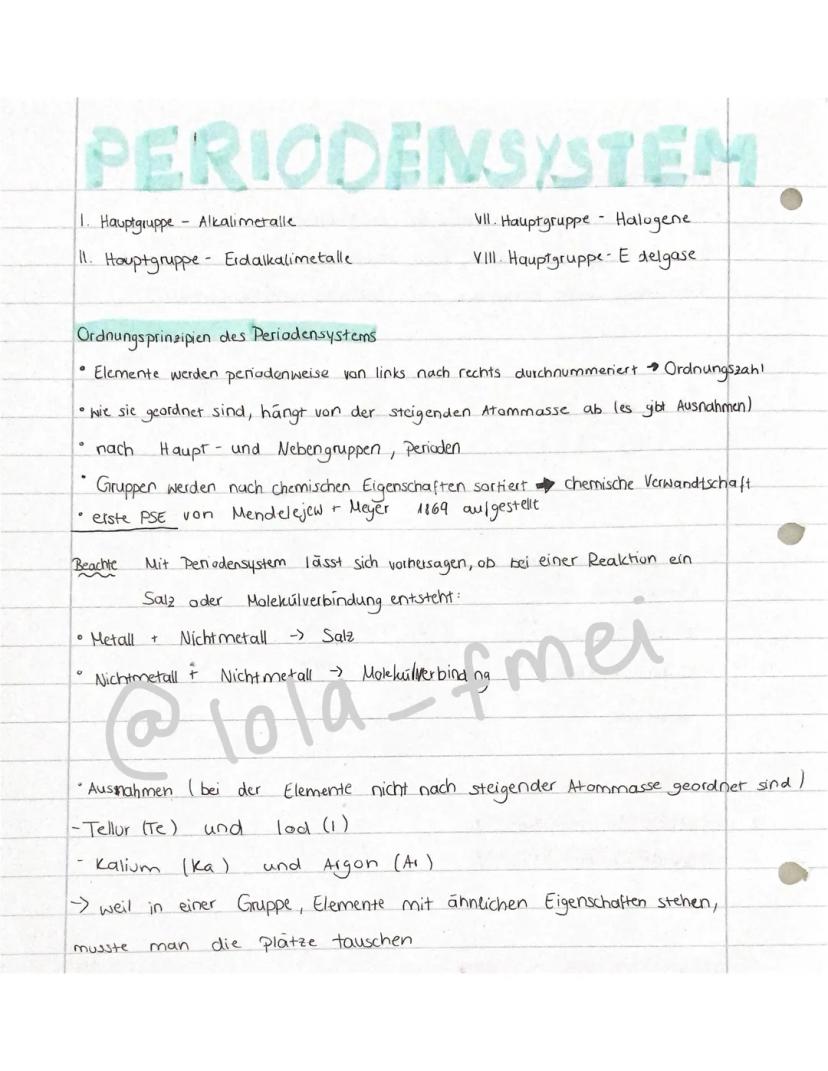 PERIODENSYSTEM
I. Hauptgruppe - Alkalimetalle VII. Hauptgruppe - Halogene
II. Hauptgruppe - Erdalkalimetalle VIII. Hauptgruppe - Edelgase
Ordnungsprinzipien des Periodensystems
• Elemente werden periodenweise von links nach rechts durchnummeriert → Ordnungszahl
• wie sie geordnet sind, hängt von der steigenden Atommasse ab (es gibt Ausnahmen)
• nach Haupt- und Nebengruppen, Perioden
• Gruppen werden nach chemischen Eigenschaften sortiert → chemische Verwandtschaft
• erste PSE von Mendelejew + Meyer 1869 aufgestellt
Beachte Mit Periodensystem lässt sich vorhersagen, ob bei einer Reaktion ein
Salz oder Molekülverbindung entsteht:
• Metall + Nichtmetall → Salz
• Nichtmetall + Nichtmetall → Molekülverbindng
@lola_fmei
• Ausnahmen (bei der Elemente nicht nach steigender Atommasse geordnet sind)
- Tellur (Te) und Iod (I)
- Kalium (Ka) und Argon (Ar)
→ weil in einer Gruppe, Elemente mit ähnlichen Eigenschaften stehen,
musste man die Plätze tauschen